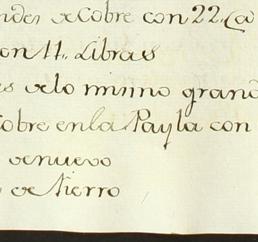 andes de Cobre con 22. Ca
on 11. Libras
es de lo mismo grand
Cobre en la Payla con
de nuevo
de Fierro